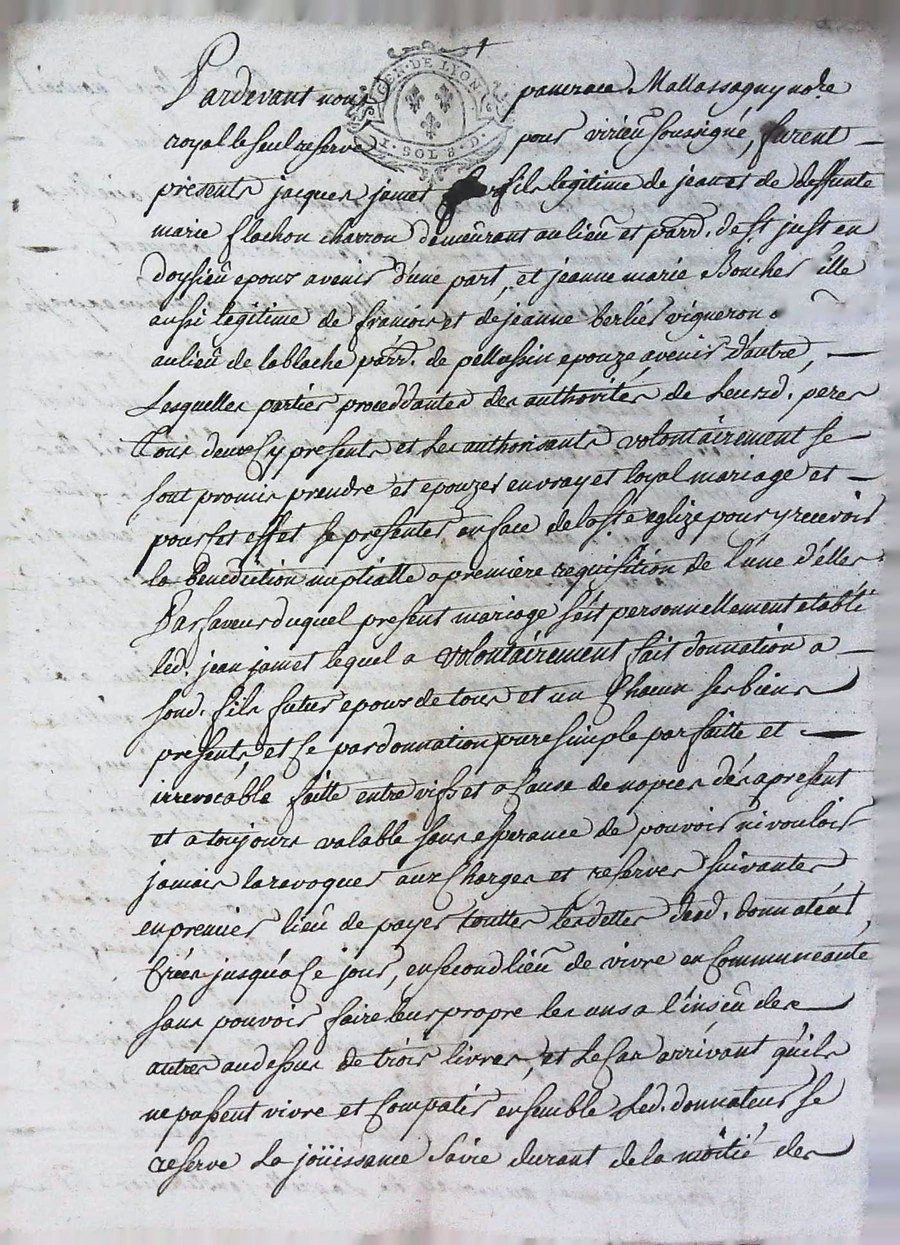 GEN. DE LYON
I. SOL 8. D.
Pardevant nous pancrace Mallassagny nore
royal le seul reservé pour virieu soussigné, furent
presents jacques jamet fils legitime de jean et de deffunte
marie flachon charron demeurant au lieu et parr. de st just en
doysieu epoux avenir d'une part, et jeanne marie Boucher fille
aussi legitime de francois et de jeanne berlier vigneron
au lieu de lablache parr. de pellussin epouze avenir d'autre,
Lesquelles parties proceddantes des authorités de Leursd. peres
Tous deux cy presents et Les authorisants volontairement se
sont promis prendre et epouzer en vray et loyal mariage et
pour cet effet se presenter en face de la ste eglize pour y recevoir
la Benediction nuptialle a première requisition de L'une d'elles
Par faveur duquel present mariage s'est personnellement etabli
led. jean jamet lequel a volontairement fait donnation a
sond. fils futur epoux de tous et un Chacun ses biens
presents, et ce par donnation pure simple parfaitte et
irrevocable faitte entre vifs et a Cause de nopces dés apresent
et a toujours valable sans esperance de pouvoir ni vouloir
jamais la revoquer aux Charges et reserves suivantes
en premier lieu de payer touttes les dettes dud. donnateur
Créés jusqu'a Ce jour, en second lieu de vivre en Communeauté
sans pouvoir faire leur propre les uns a l'inscu des
autres au dessus de trois livres, et Le Cas arrivant qu'ils
ne pussent vivre et Compatir ensemble Led. donnateur se
reserve La joüissance sa vie durant de la moitié des